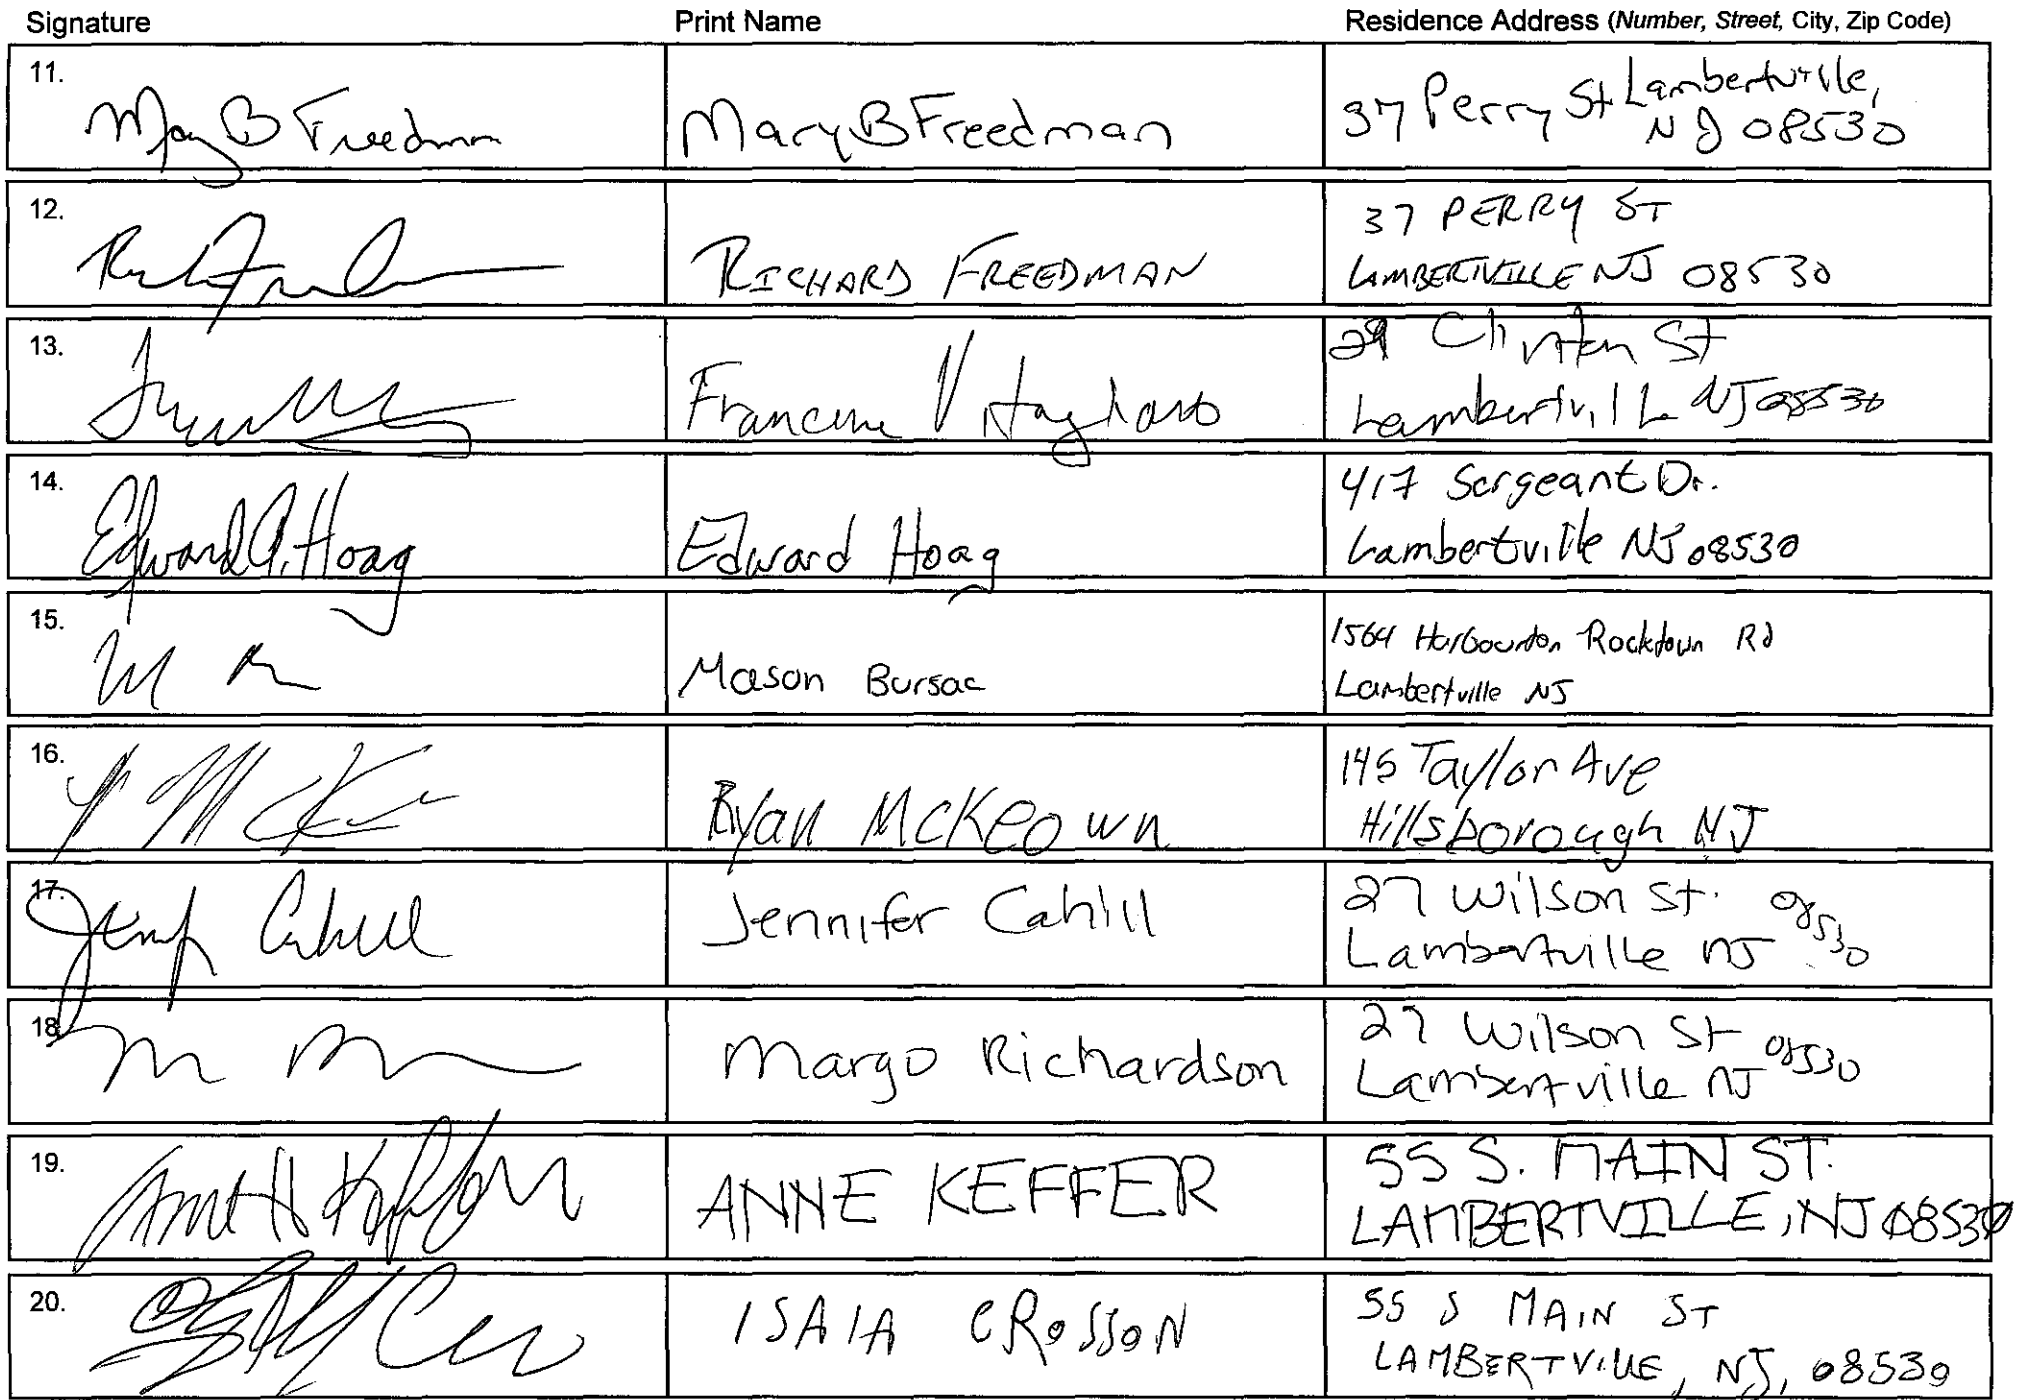 Signature Print Name Residence Address (Number, Street, City, Zip Code)
11.
Mary B Freedman
Mary B Freedman
37 Perry St Lambertville,
NJ 08530
12.
RICHARD FREEDMAN
37 PERRY ST
LAMBERTVILLE NJ 08530
13.
Francine
29 Clinton St
Lambertville NJ 08530
14.
Edward A. Hoag
Edward Hoag
417 Sargeant Dr.
Lambertville NJ 08530
15.
Mason Bursac
1564 Harbourton Rocktown Rd
Lambertville NJ
16.
Ryan McKeown
145 Taylor Ave
Hillsborough NJ
17.
Cahill
Jennifer Cahill
27 Wilson St. 08530
Lambertville NJ
18.
Margo Richardson
27 Wilson St 08530
Lambertville NJ
19.
ANNE KEFFER
55 S. MAIN ST.
LAMBERTVILLE, NJ 08530
20.
ISAIA CROSSON
55 S MAIN ST
LAMBERTVILLE, NJ, 08530